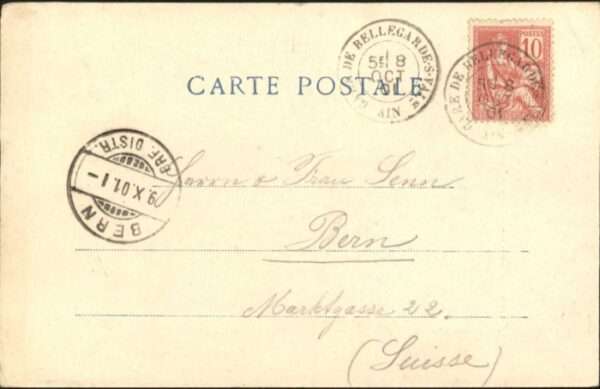 GARE DE BELLEGARDE-S-VALSE
5E 8
OCT
01
AIN
10
CARTE POSTALE
GARE DE BELLEGARDE
AIN
BERN
9.X.01.I-
BRF. DISTR.
Herrn & Frau Senn
Bern
Marktgasse 22.
(Suisse)